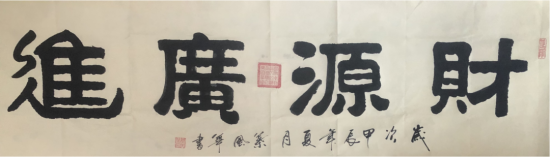 財源廣進
歲次甲辰年夏月
書